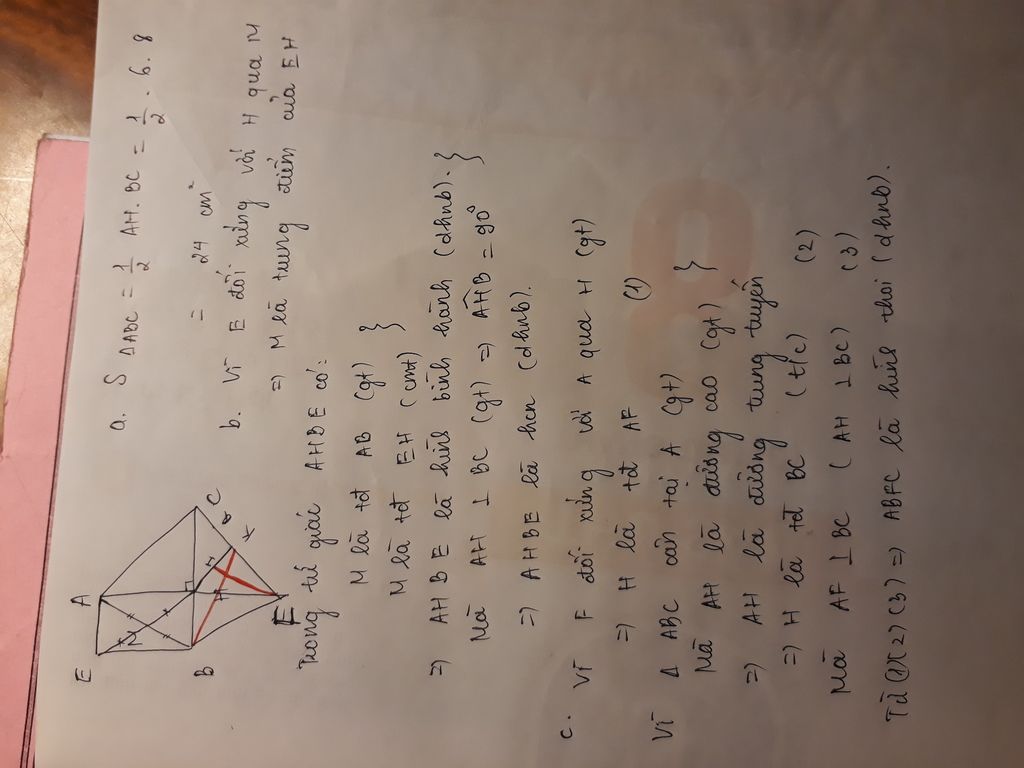 a. S ΔABC = 1/2 AH. BC = 1/2 . 6. 8
= 24 cm²
b. Vì E đối xứng với H qua M
=> M là trung điểm của EH
E A
M
B C
H
K
F
Trong tứ giác AHBE có:
M là tđ AB (gt) }
M là tđ EH (cmt)
=> AHBE là hình bình hành (dhnb). }
Mà AH ⊥ BC (gt) => AHB = 90°
=> AHBE là hcn (dhnb).
c. Vì F đối xứng với A qua H (gt)
=> H là tđ AF (1)
Vì Δ ABC cân tại A (gt)
Mà AH là đường cao (gt) }
=> AH là đường trung tuyến
=> H là tđ BC (t/c) (2)
Mà AF ⊥ BC ( AH ⊥ BC) (3)
Từ (1)(2)(3) => ABFC là hình thoi (dhnb).